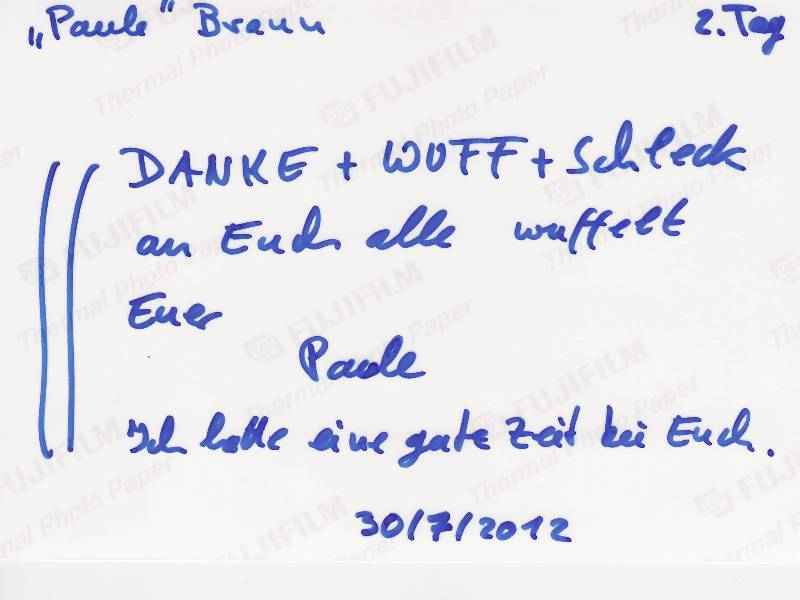 „Paule“ Braun 2. Tag
DANKE + WUFF + Schleck
an Euch alle wuffelt
Euer
Paule
Ich hatte eine gute Zeit bei Euch.
30/7/2012
FUJIFILM
Thermal Photo Paper